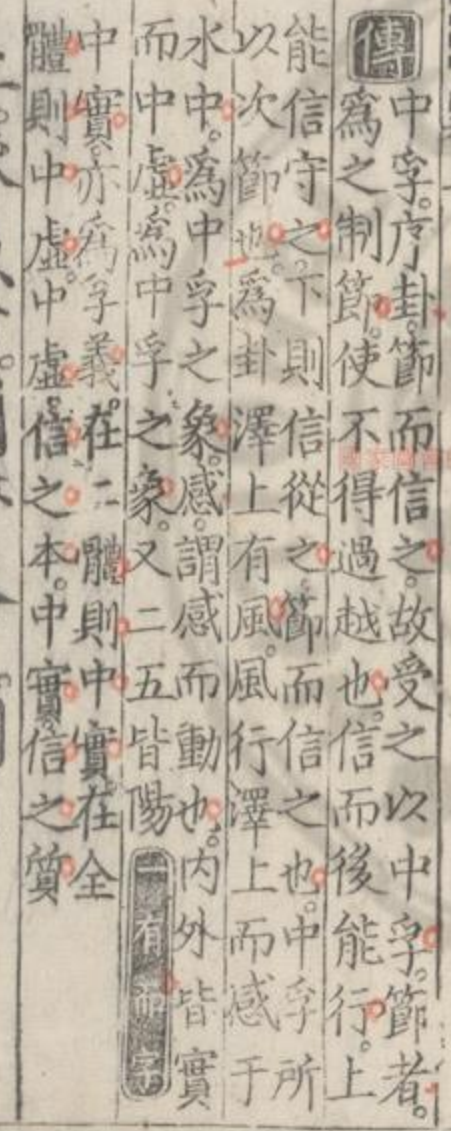 傳
中孚。序卦。節而信之。故受之以中孚。節者。
爲之制節。使不得過越也。信而後能行。上
能信守之。下則信從之。節而信之也。中孚所
以次節也。爲卦澤上有風。風行澤上而感于
水中。爲中孚之象。感。謂感而動也。内外皆實
而中虛。爲中孚之象。又二五皆陽一有而字
中實。亦爲孚義。在二體則中實。在全
體則中虛。中虛。信之本。中實。信之質